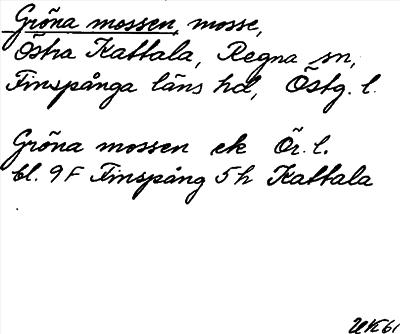 Gröna mossen, mosse,
Östra Kattala, Regna sn,
Finspånga läns hd, Östg. l.
Gröna mossen ek Ör. l.
bl. 9F Finspång 5h Kattala
UK61